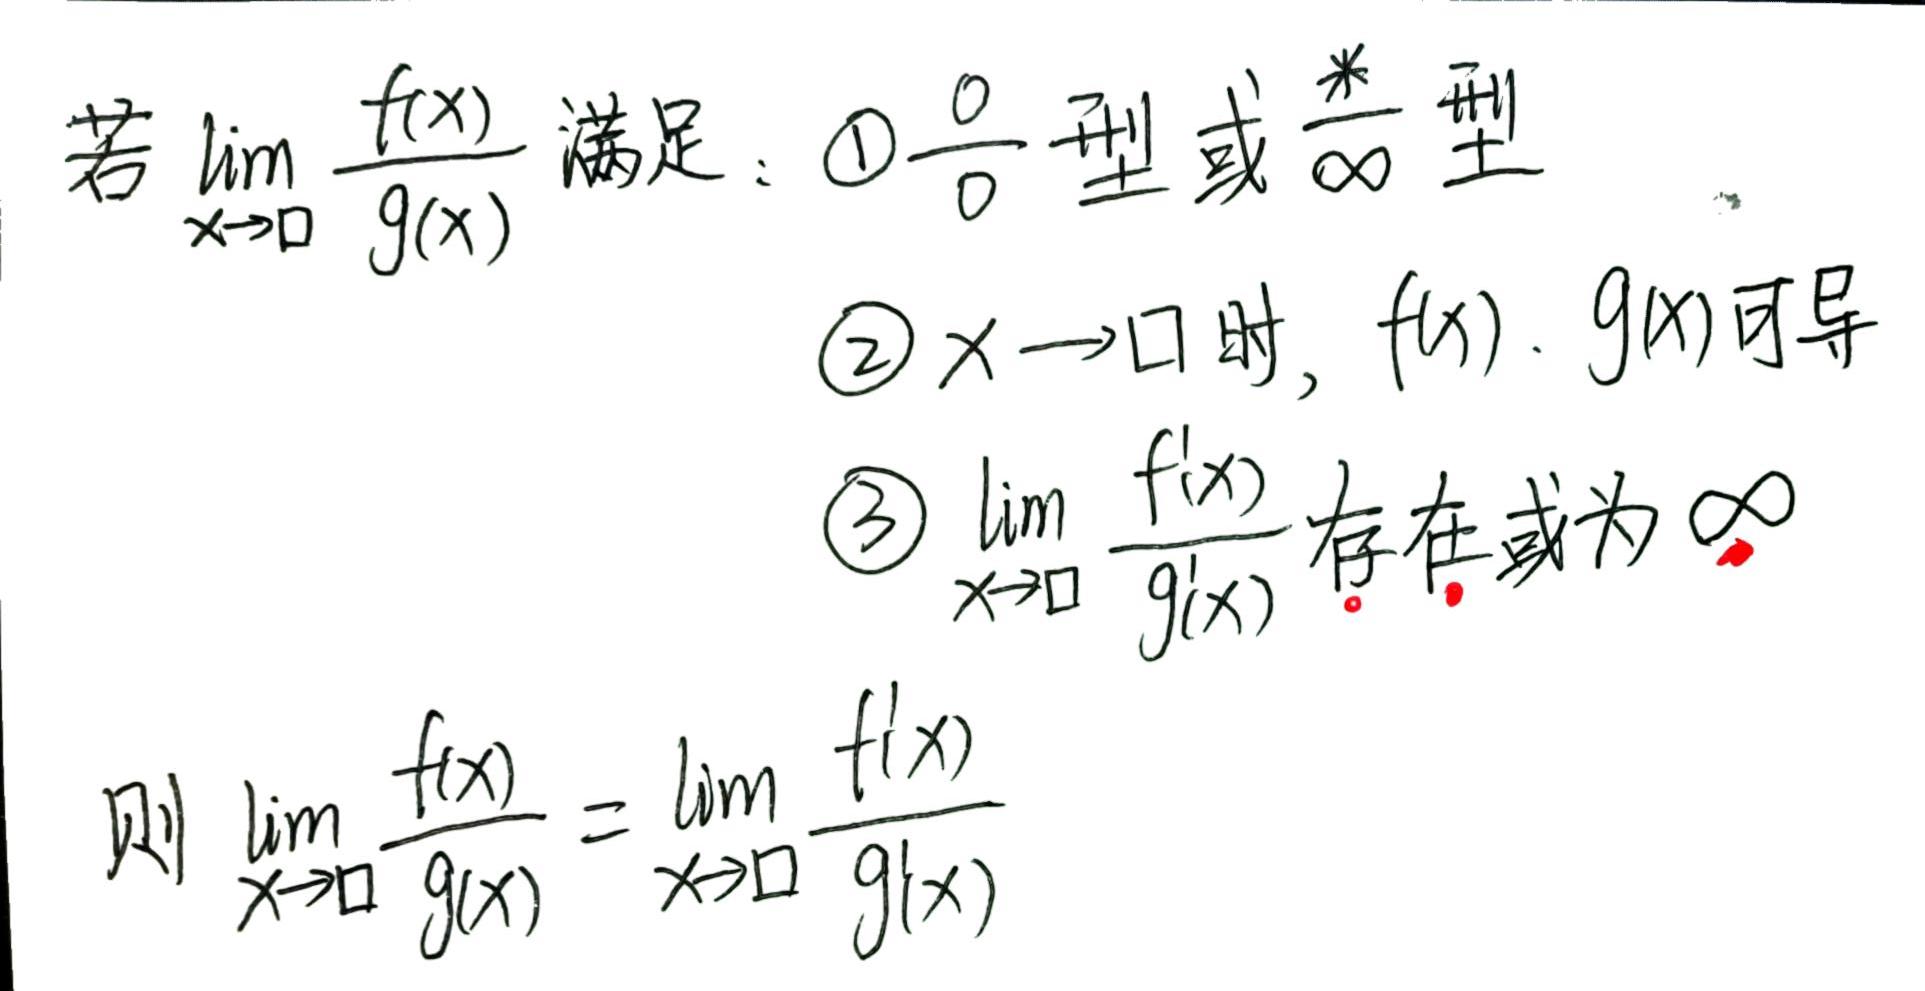 若 lim_{x→□} f(x)/g(x) 满足: ① 0/0 型或 */∞ 型
② x→□时, f(x). g(x)可导
③ lim_{x→□} f'(x)/g'(x) 存在或为 ∞
则 lim_{x→□} f(x)/g(x) = lim_{x→□} f'(x)/g'(x)